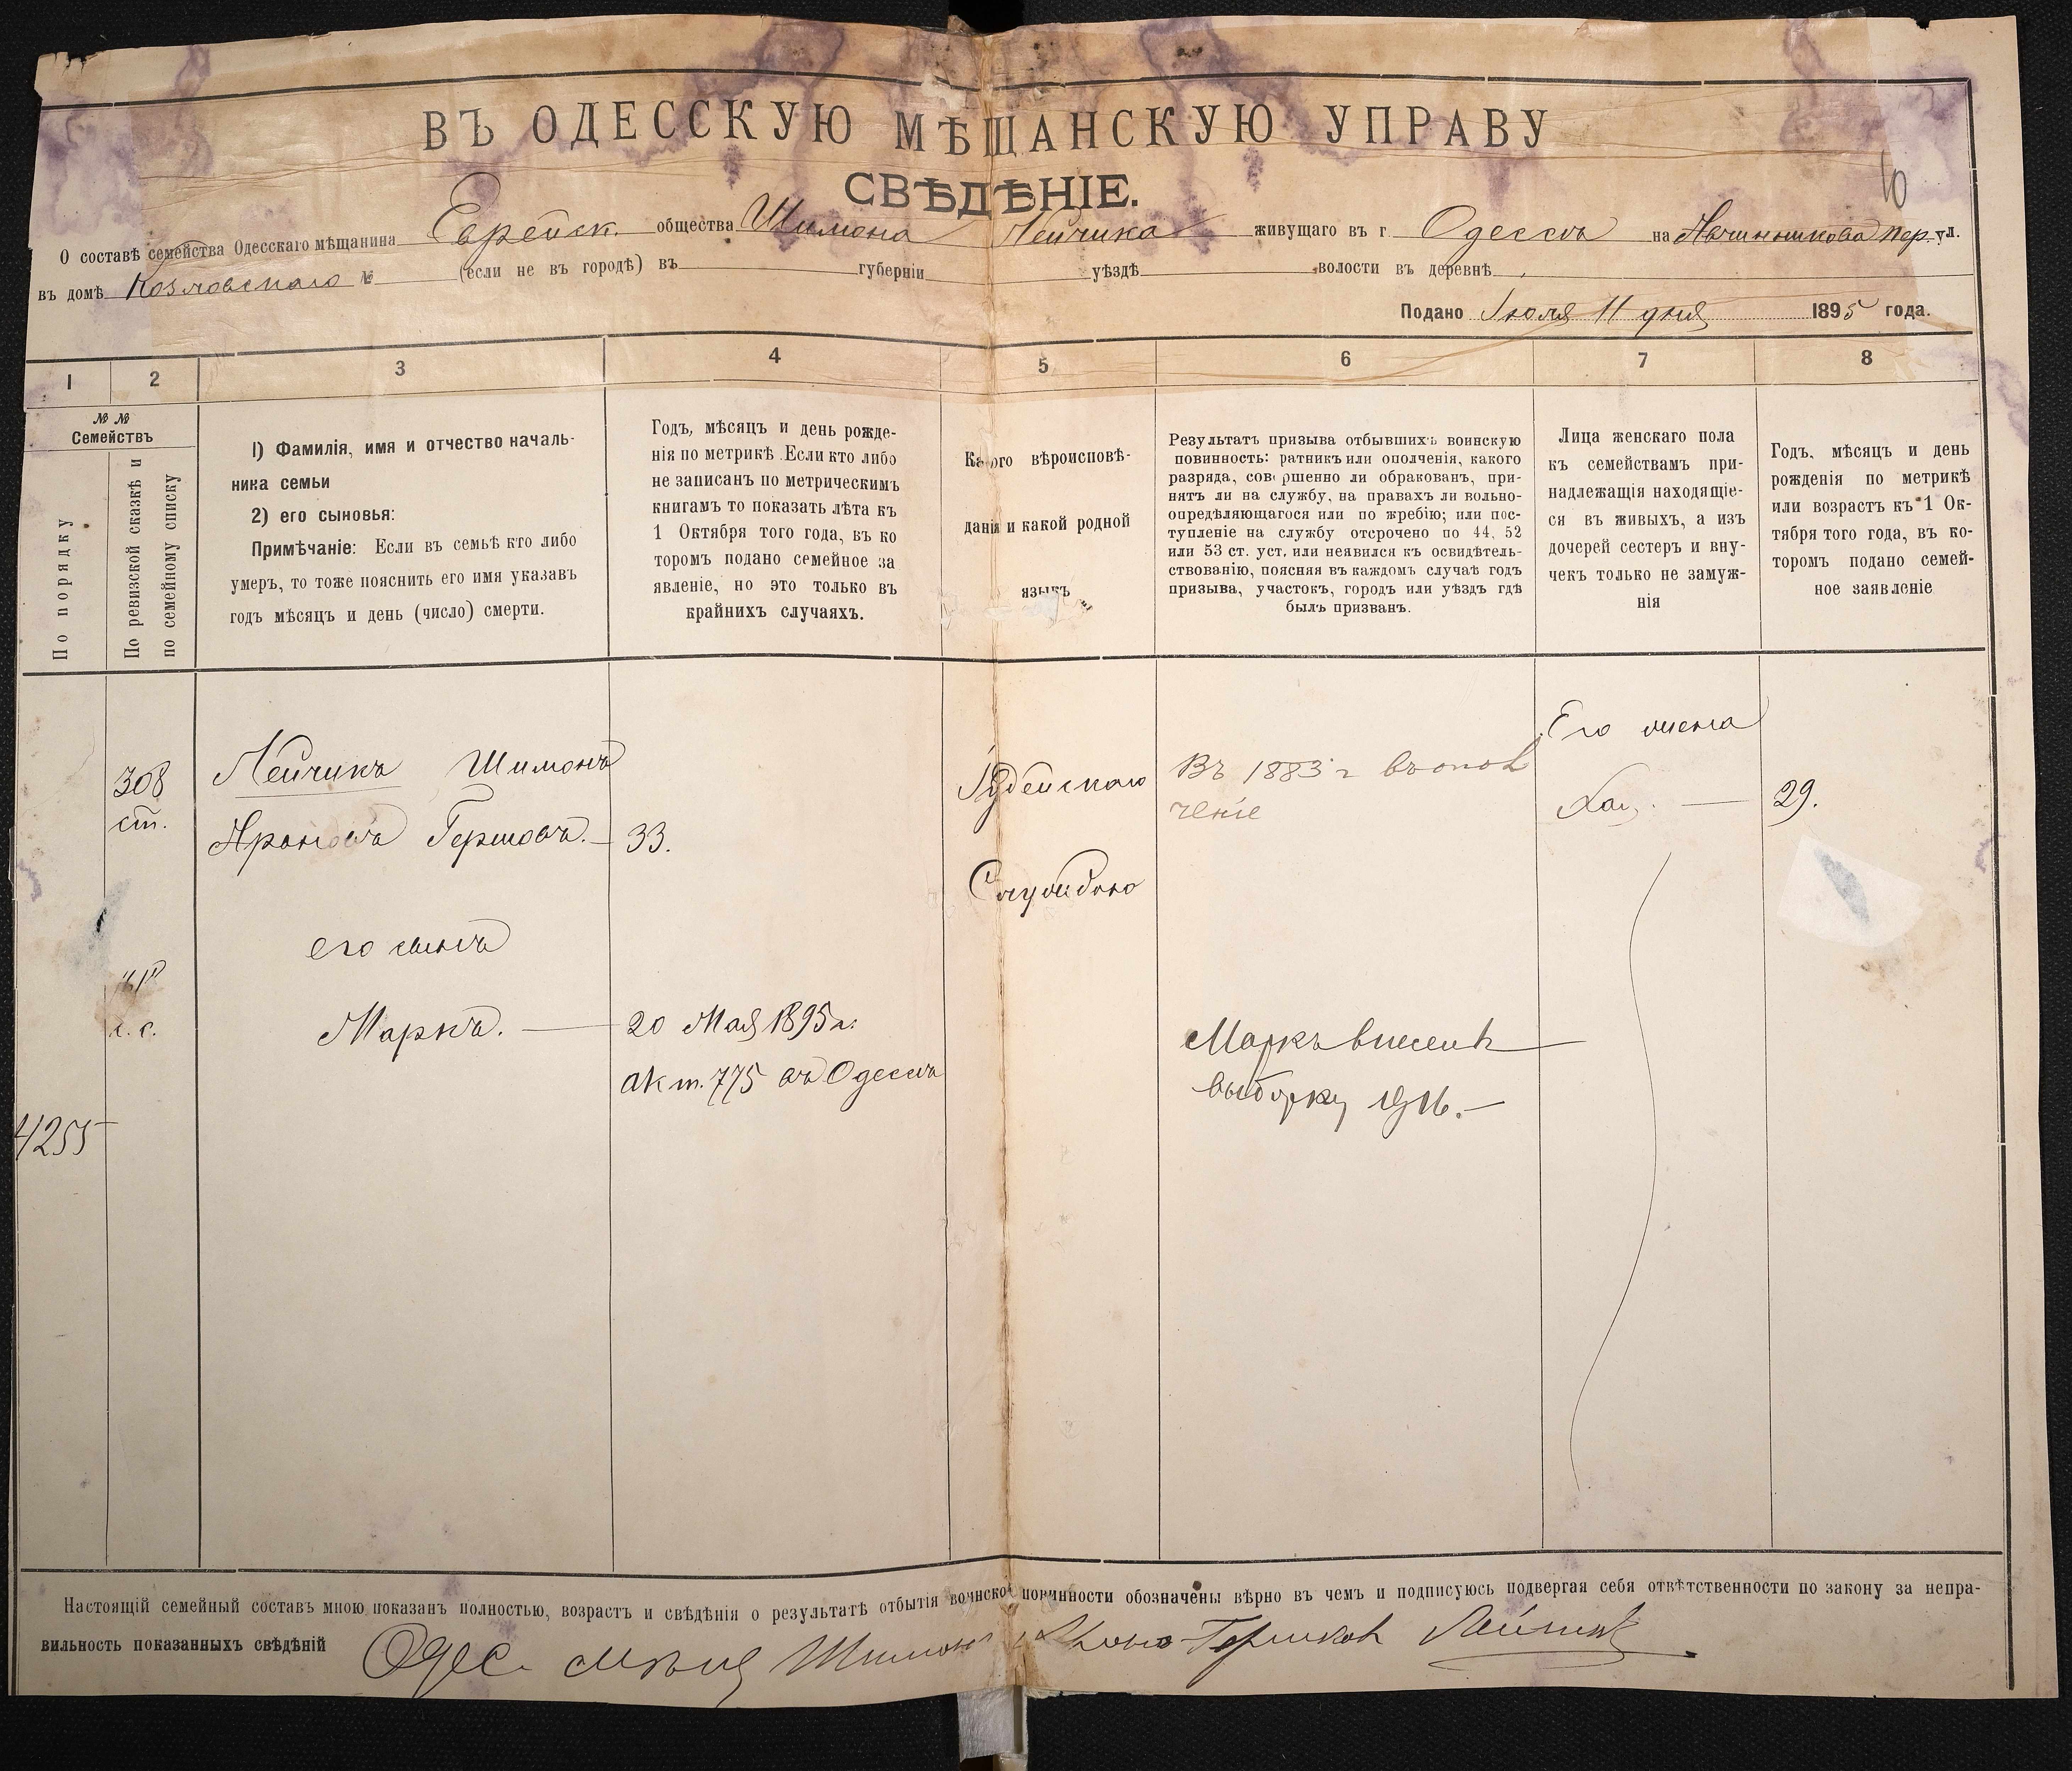 ВЪ ОДЕССКУЮ МѢЩАНСКУЮ УПРАВУ
СВѢДѢНІЕ.
О составѣ семейства Одесскаго мѣщанина Еврейск. общества Шимона Лейчика живущаго въ г. Одессѣ на пер. ул.
въ домѣ Козловскаго № (если не въ городѣ) въ губерніи уѣздѣ волости въ деревнѣ
Подано Іюля 11 дня 1895 года.
1 2 3 4 5 6 7 8
№ №
Семействъ
По порядку
По ревизской сказкѣ и
по семейному списку
1) Фамилія, имя и отчество началь-
ника семьи
2) его сыновья:
Примѣчаніе: Если въ семьѣ кто либо
умеръ, то тоже пояснить его имя указавъ
годъ мѣсяцъ и день (число) смерти.
Годъ, мѣсяцъ и день рожде-
нія по метрикѣ. Если кто либо
не записанъ по метрическимъ
книгамъ то показать лѣта къ
1 Октября того года, въ ко
торомъ подано семейное за
явленіе, но это только въ
крайнихъ случаяхъ.
Какого вѣроисповѣ-
данія и какой родной
языкъ
Результатъ призыва отбывшихъ воинскую
повинность: ратникъ или ополченія, какого
разряда, совершенно ли обракованъ, при-
нятъ ли на службу, на правахъ ли вольно-
опредѣляющагося или по жребію; или пос-
тупленіе на службу отсрочено по 44, 52
или 53 ст. уст. или неявился къ освидѣтель-
ствованію, поясняя въ каждомъ случаѣ годъ
призыва, участокъ, городъ или уѣздъ гдѣ
былъ призванъ.
Лица женскаго пола
къ семействамъ при-
надлежащія находящіе-
ся въ живыхъ, а изъ
дочерей сестеръ и вну-
чекъ только не замуж-
нія
Годъ, мѣсяцъ и день
рожденія по метрикѣ
или возрастъ къ 1 Ок-
тября того года, въ ко-
торомъ подано семей-
ное заявленіе
Его жена
308 Лейчикъ Шимонъ Іудейскаго Въ 1883 г въ опол
ст. чение 29.
Ароновъ Гершовъ. — 33.
его сынъ
Маркъ. — 20 Мая 1895 г.
акт. 775 въ Одессѣ
Маркъ внесенъ
выборку 1916. —
4255
Настоящій семейный составъ мною показанъ полностью, возрастъ и свѣдѣнія о результатѣ отбытія воинской повинности обозначены вѣрно въ чемъ и подписуюсь подвергая себя отвѣтственности по закону за непра-
вильность показанныхъ свѣдѣній Одес. мѣщ Шимонъ